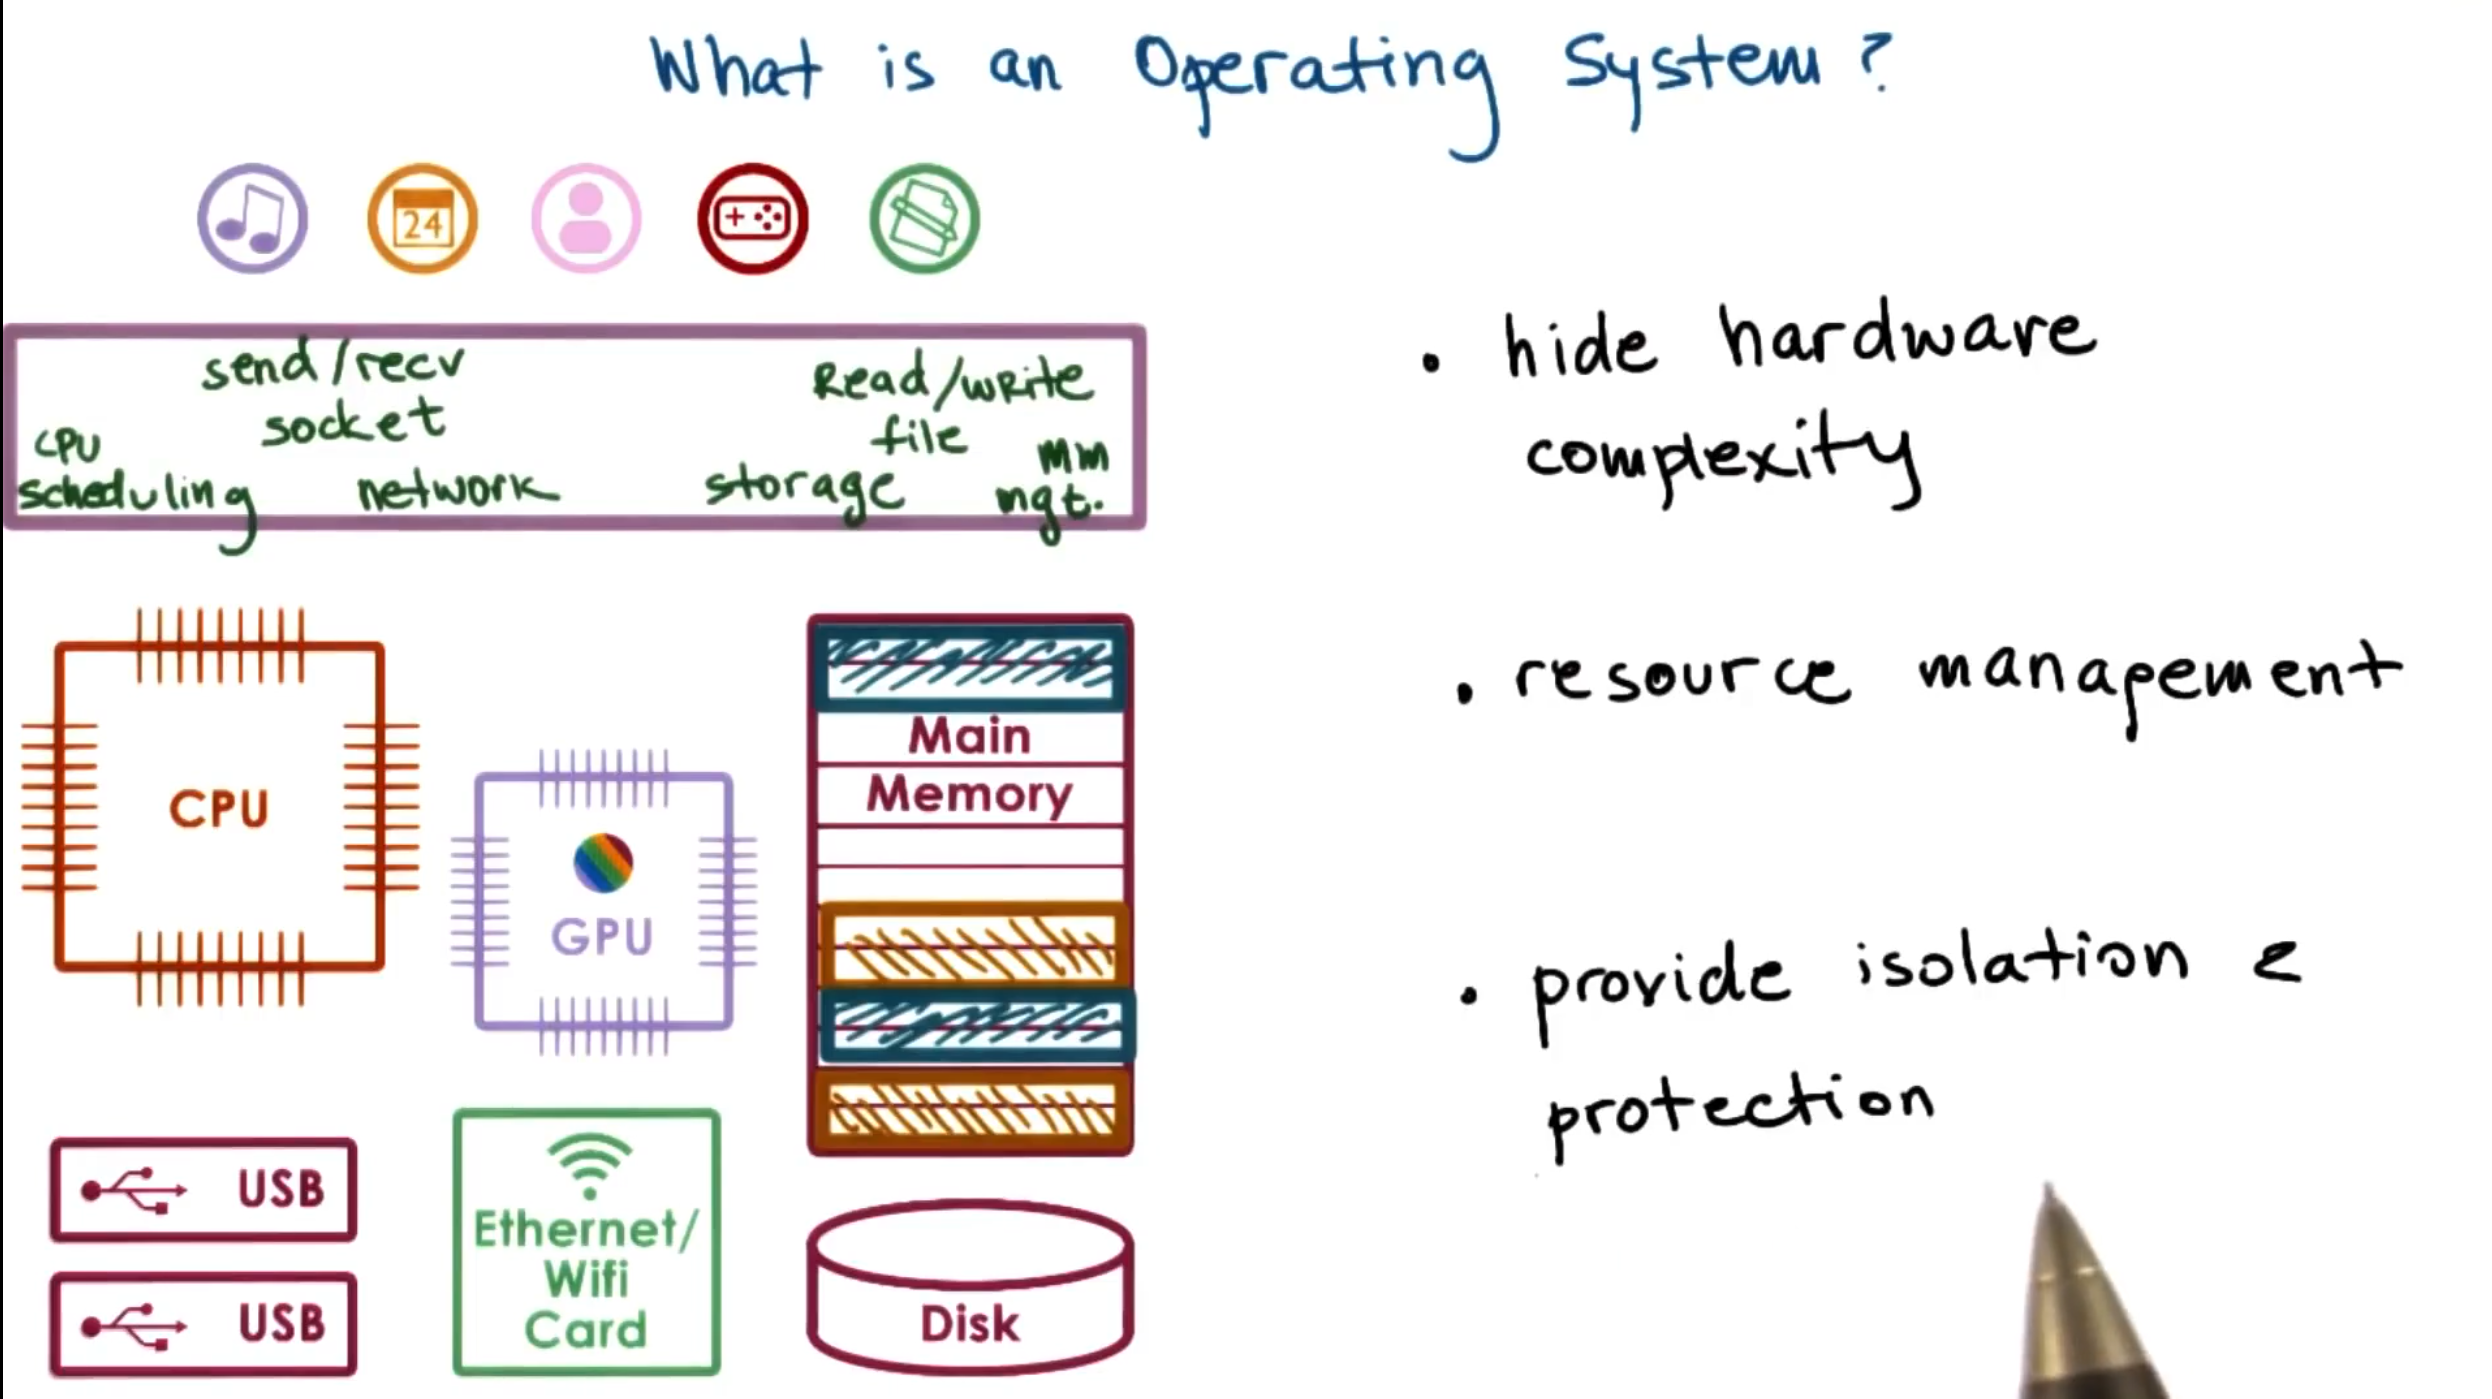 What is an Operating System ?
24
send/recv
socket
CPU
scheduling
network
Read/write
file
storage
mm
mgt.
CPU
GPU
Main
Memory
USB
USB
Ethernet/
Wifi
Card
Disk
• hide hardware
complexity
• resource management
• provide isolation &
protection